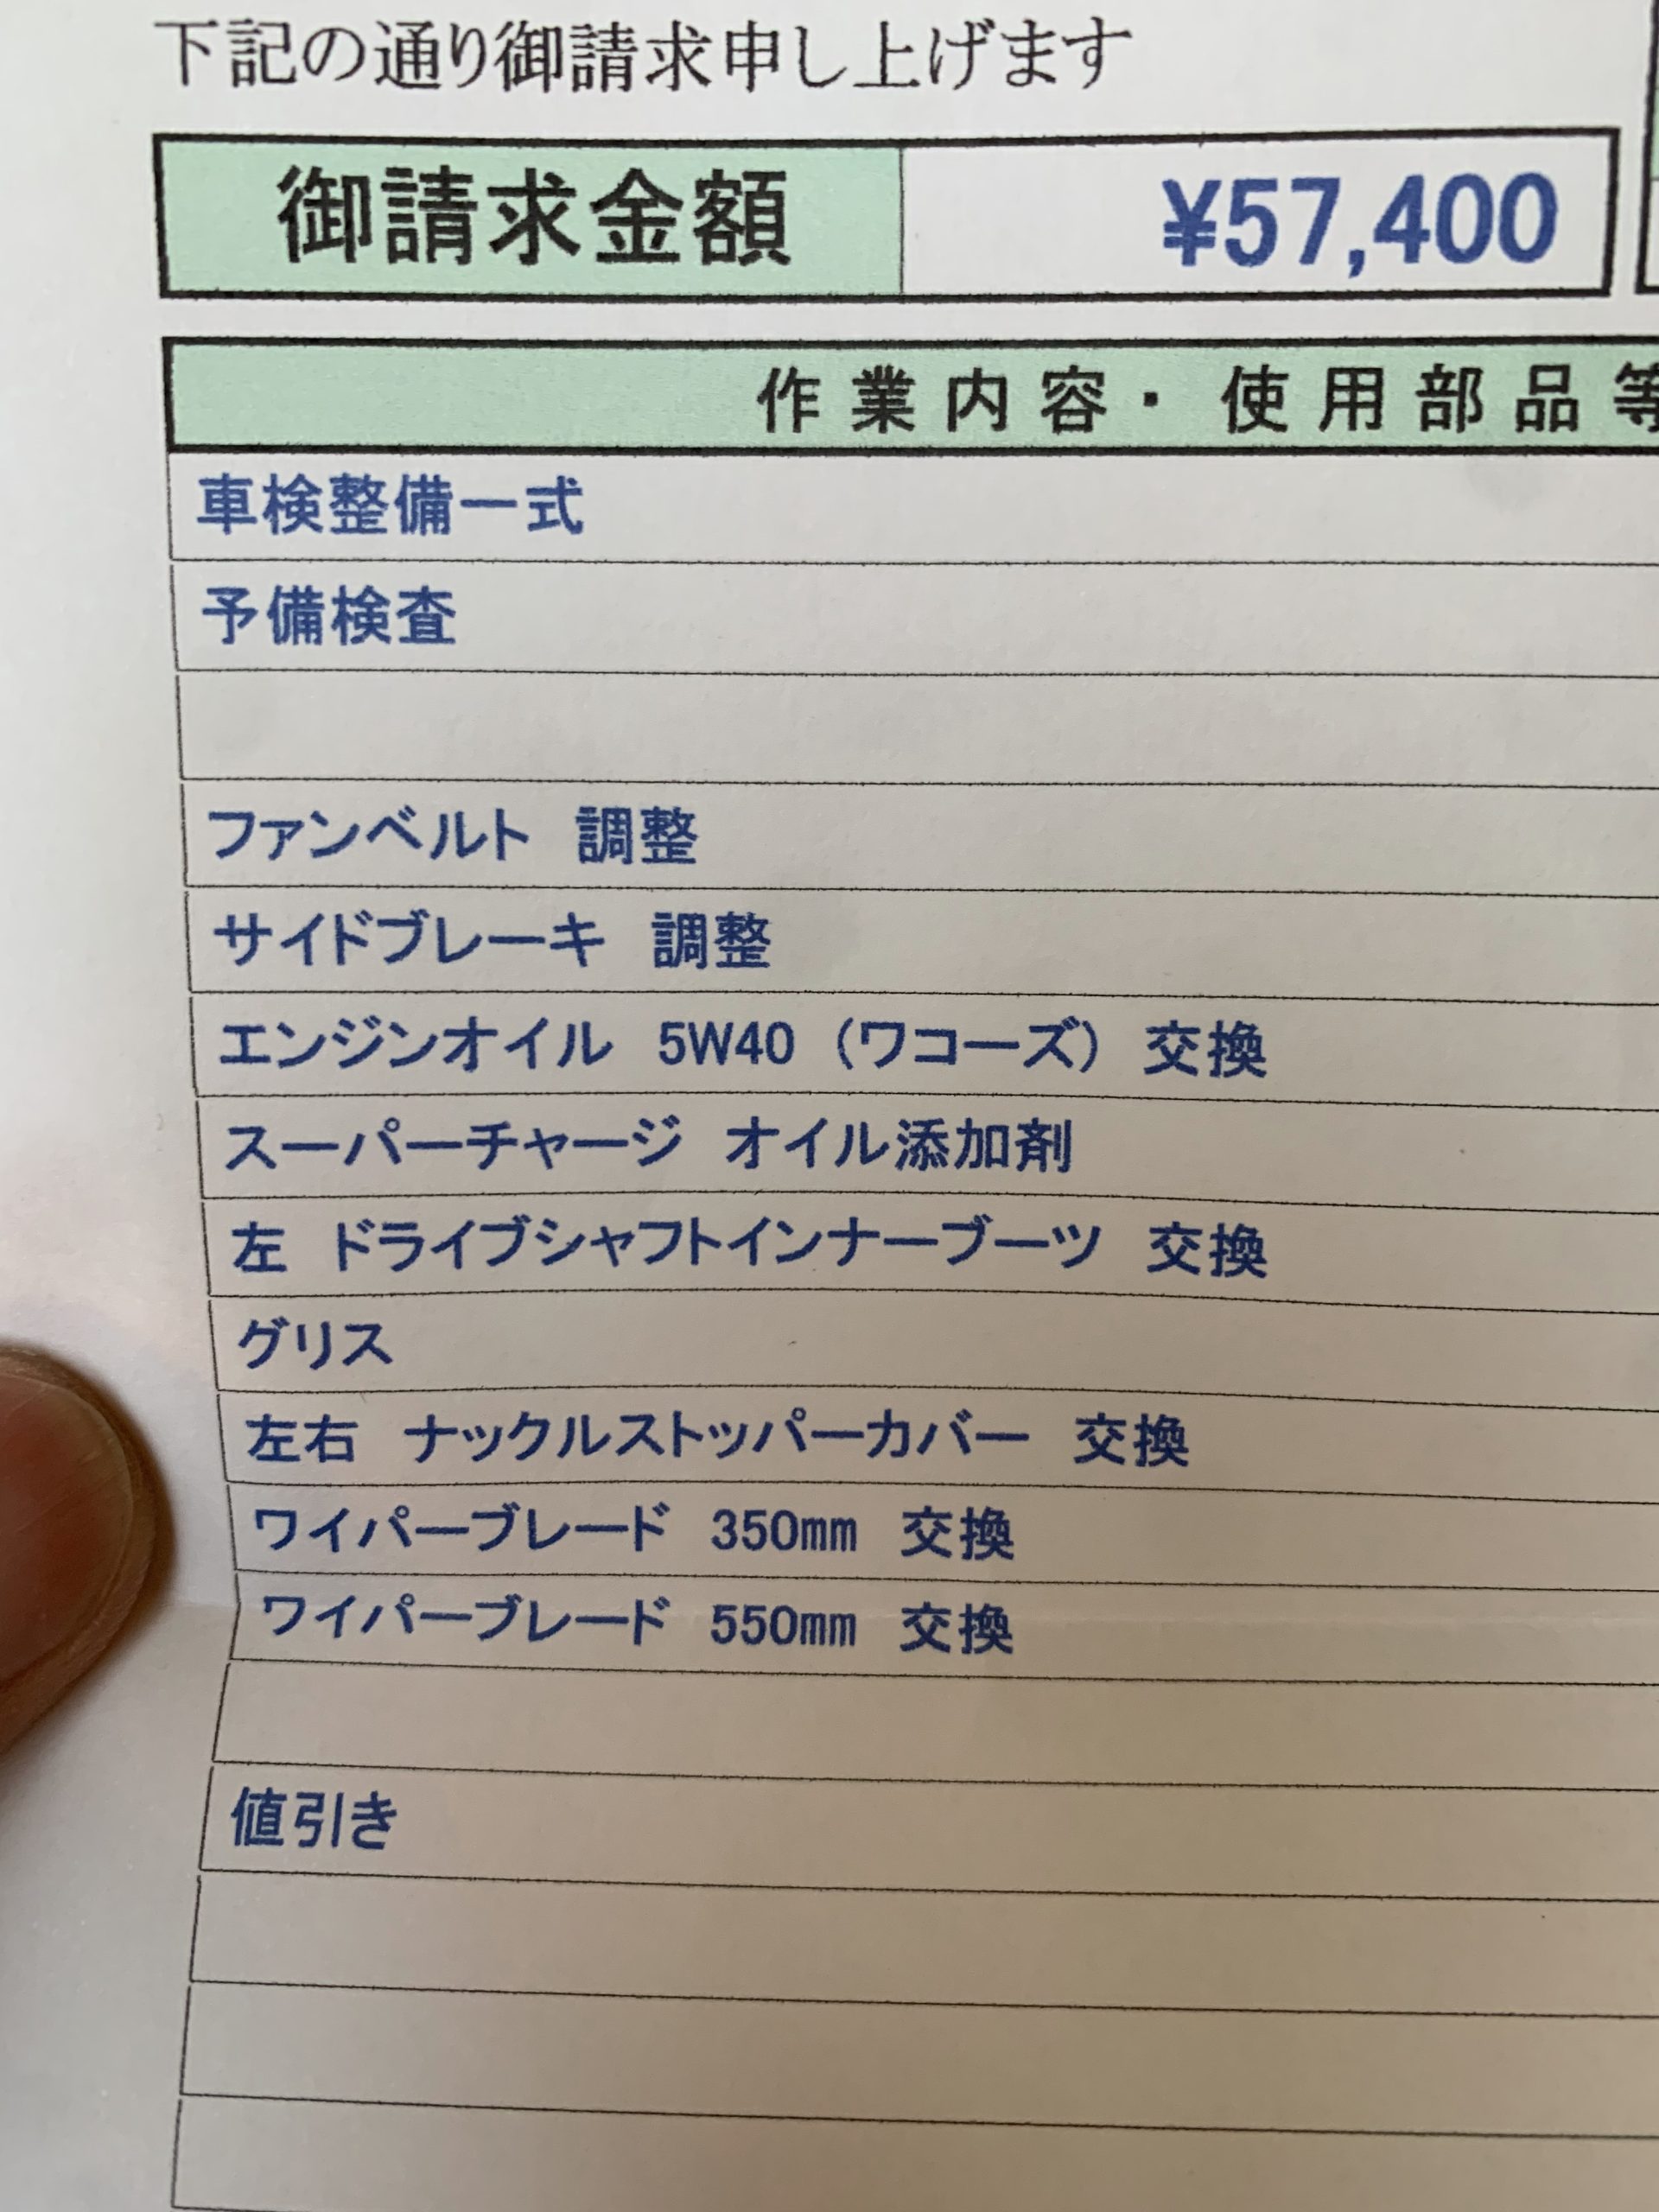 下記の通り御請求申し上げます
御請求金額 ¥57,400
作業内容・使用部品等
車検整備一式
予備検査
ファンベルト 調整
サイドブレーキ 調整
エンジンオイル 5W40 (ワコーズ) 交換
スーパーチャージ オイル添加剤
左 ドライブシャフトインナーブーツ 交換
グリス
左右 ナックルストッパーカバー 交換
ワイパーブレード 350mm 交換
ワイパーブレード 550mm 交換
値引き